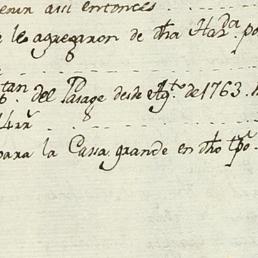 asi entonces
le agregaron de dha Hazda. po
tan
del Parage desde Agto. de 1763.
4 rr
para la Casa grande en dho tpo.